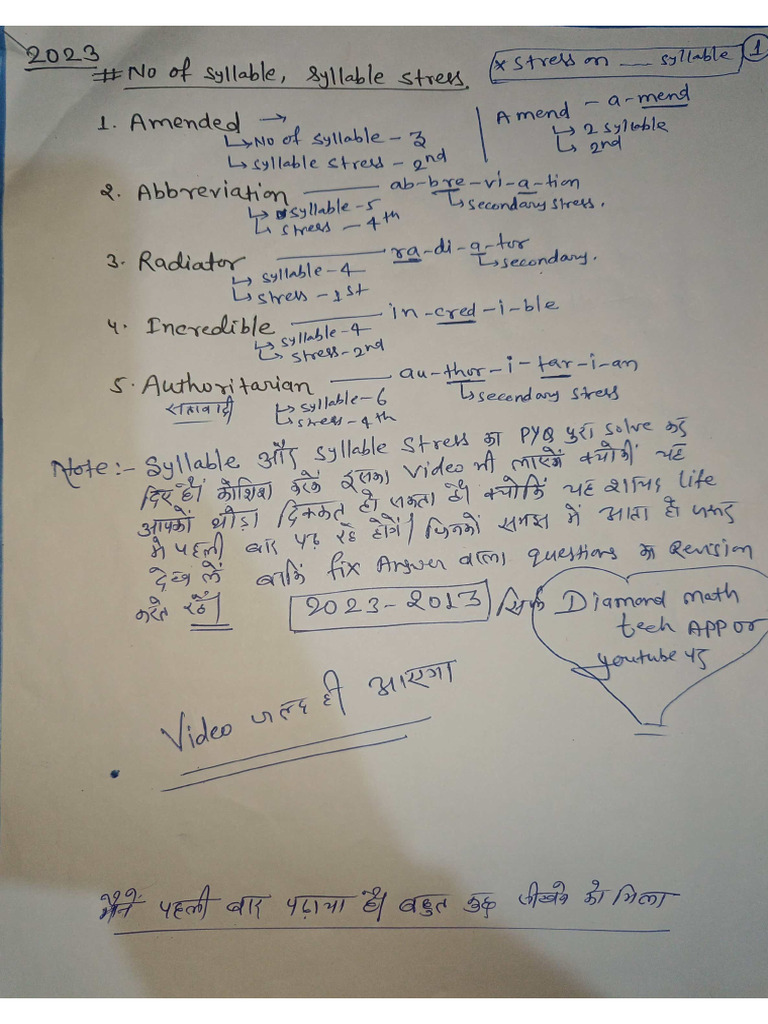 2023
# No of syllable, syllable stress.
* Stress on __ syllable
1
1. Amended →
↳ No of syllable - 3
↳ syllable stress - 2nd
Amend - a-mend
↳ 2 syllable
↳ 2nd
2. Abbreviation — ab-bre-vi-a-tion
↳ syllable-5
↳ stress - 4th
↳ secondary stress.
3. Radiator — ra-di-a-tor
↳ syllable-4
↳ stress-1st
↳ secondary.
4. Incredible — in-cred-i-ble
↳ syllable-4
↳ stress-2nd
5. Authoritarian — au-thor-i-tar-i-an
सतावादी
↳ syllable-6
↳ stress-4th
↳ secondary stress
Note:- Syllable और syllable stress का PYQ पुरा solve कर
दिए हैं। कोशिश करके इसका video भी लाएंगें क्योकीं यह
आपकों थोड़ा दिक्कत हो सकता है। क्योकिं यह शायद life
मे पहली बार पढ़ रहे होगें। जिनकों समझ में आता हो जरूर
देख लें बाकि fix Answer वाला questions का Revision
करते रहें।
2023-2013
सिर्फ Diamond math
tech APP or
youtube पर
Video जल्द ही आएगा
मैनें पहली बार पढ़ाया है। बहुत कुछ सीखने को मिला